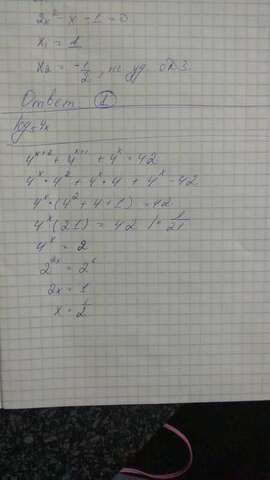 2x² - x - 1 = 0
x₁ = 1
x₂ = -1/2, не уд. ОДЗ.
Ответ: 1
4ˣ⁺² + 4ˣ⁺¹ + 4ˣ = 42
4ˣ · 4² + 4ˣ · 4 + 4ˣ = 42
4ˣ · (4² + 4 + 1) = 42
4ˣ (21) = 42 | · 1/21
4ˣ = 2
2²ˣ = 2¹
2x = 1
x = 1/2